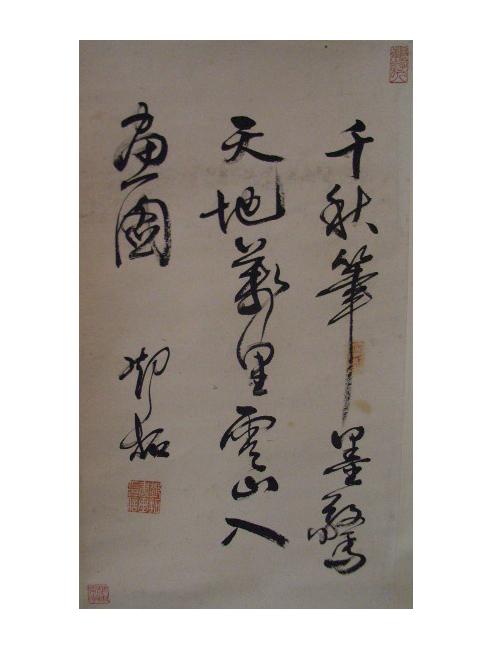 千秋筆墨驚
天地萬里雲山入
畫圖